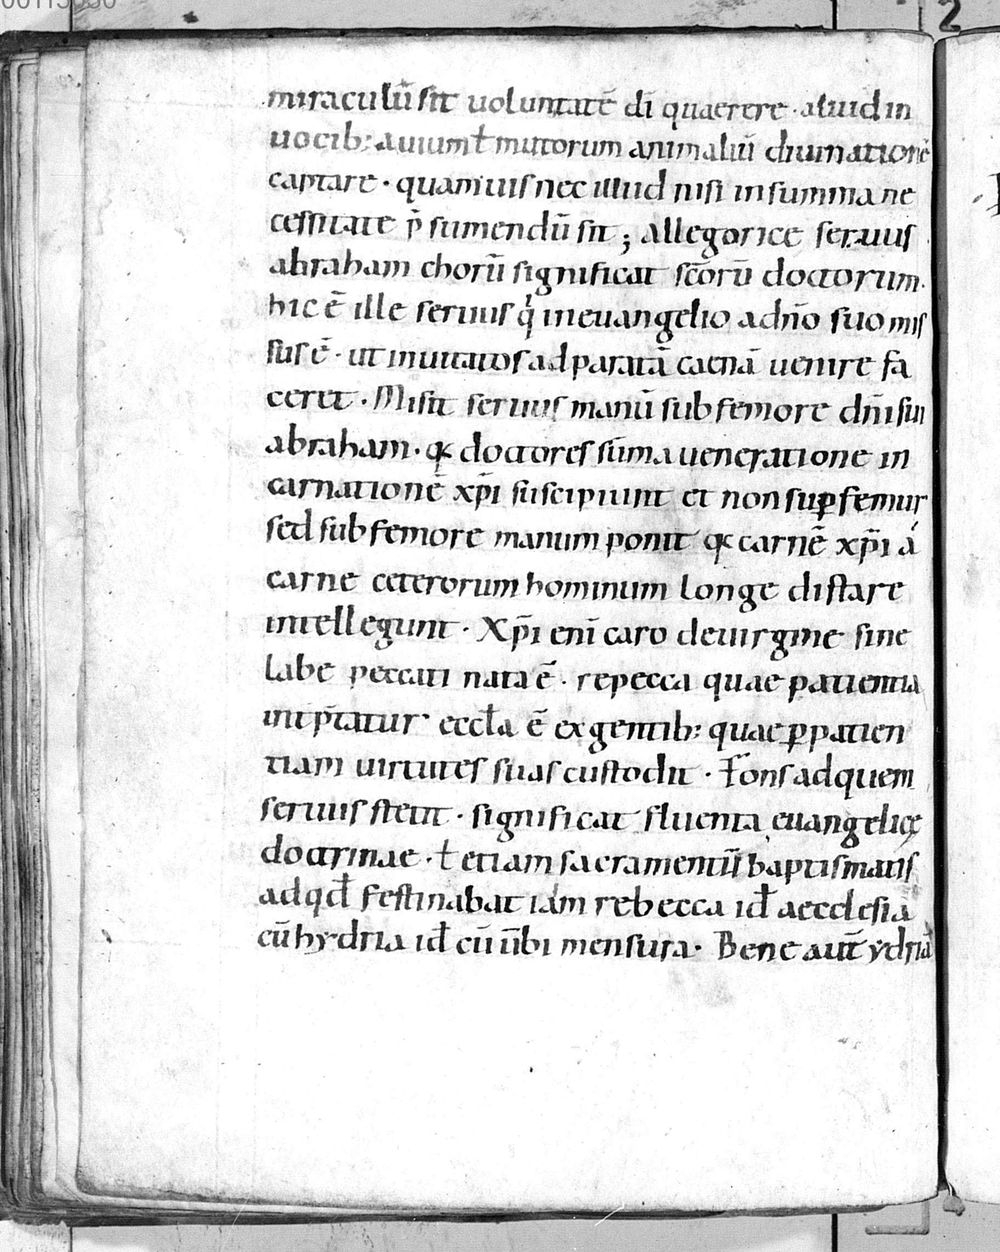 miraculū sit uoluntatē dī quaerere · aliud in
uocib: auium ł mutorum animaliū diuinationē
captare · quamuis nec illud nisi in summa ne
cessitate p̄sumendū sit ; allegorice seruus
abraham chorū significat sc̄orū doctorum ·
hic ē ille seruus qͥ in euangelio a dn̄o suo mis
sus ē · ut inuitatos ad paratā caenā uenire fa
ceret · Misit seruus manū sub femore dn̄i sui
abraham · qꝛ doctores sūma ueneratione in
carnationē xp̄i suscipiunt et non suꝑ femur
sed sub femore manum ponit qꝛ carnē xp̄i á
carne ceterorum hominum longe distare
intellegunt · Xp̄i enī caro de uirgine sine
labe peccati nata ē · repecca quae patientia
int̄p̄tatur eccła ē ex gentib: quae ꝑ patien
tiam uirtutes suas custodit · Fons ad quem
seruus stetit · significat fluenta euangelicę
doctrinae · ł etiam sacramentū baptismatis
ad qđ festinabat iam rebecca iđ aecclesia
cū hydria iđ cū ūbi mensura · Bene aut̄ ydriā